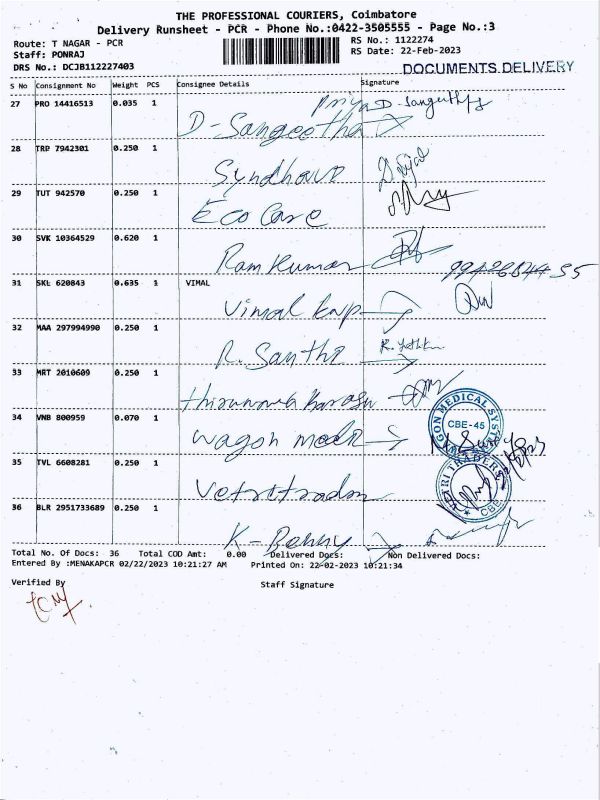 THE PROFESSIONAL COURIERS, Coimbatore
Delivery Runsheet - PCR - Phone No.:0422-3505555 - Page No.:3
Route: T NAGAR - PCR
RS No.: 1122274
Staff: PONRAJ
RS Date: 22-Feb-2023
DRS No.: DCJB112227403
DOCUMENTS DELIVERY
S No Consignment No Weight PCS Consignee Details Signature
27 PRO 14416513 0.035 1
D-Sangeetha
28 TRP 7942301 0.250 1
29 TUT 942570 0.250 1
Eco Care
30 SVK 10364529 0.620 1
Ram Kumar
31 SKL 620843 0.635 1 VIMAL
Vimal
32 MAA 297994990 0.250 1
R. Santhi
33 MRT 2010609 0.250 1
34 VNB 800959 0.070 1
wagon
CBE-45
35 TVL 6608281 0.250 1
TRADERS
CBE
36 BLR 2951733689 0.250 1
K-Benny
Total No. Of Docs: 36 Total COD Amt: 0.00 Delivered Docs: Non Delivered Docs:
Entered By :MENAKAPCR 02/22/2023 10:21:27 AM Printed On: 22-02-2023 10:21:34
Verified By Staff Signature